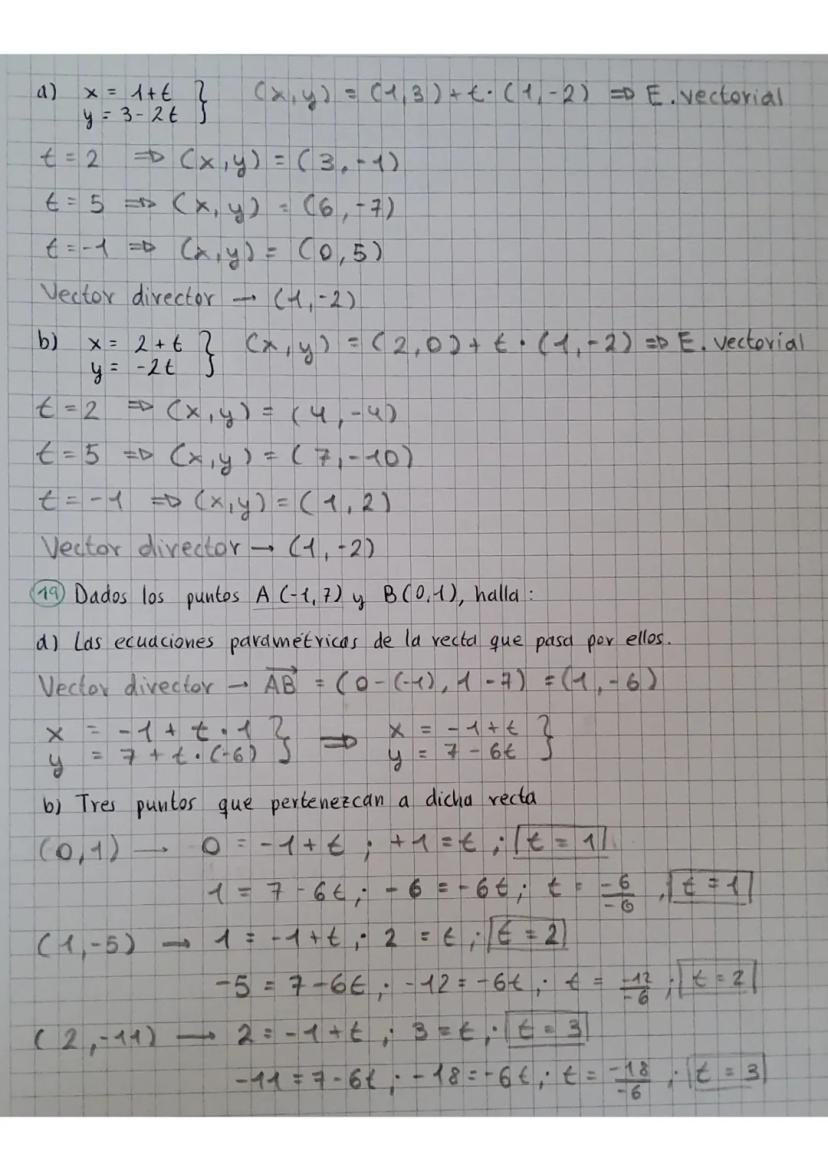 a) x = 1+t } (x,y) = (1,3)+t·(1,-2) ⇒ E.vectorial
y = 3-2t
t = 2 ⇒ (x,y) = (3,-1)
t = 5 ⇒ (x,y) = (6,-7)
t = -1 ⇒ (x,y) = (0,5)
Vector director → (1,-2)
b) x = 2+t } (x,y) = (2,0)+t·(1,-2) ⇒ E.vectorial
y = -2t
t = 2 ⇒ (x,y) = (4,-4)
t = 5 ⇒ (x,y) = (7,-10)
t = -1 ⇒ (x,y) = (1,2)
Vector director → (1,-2)
19 Dados los puntos A(-1,7) y B(0,1), halla:
a) Las ecuaciones paramétricas de la recta que pasa por ellos.
Vector director → AB = (0-(-1), 1-7) = (1,-6)
x = -1+t·1 } ⇒ x = -1+t }
y = 7+t·(-6) y = 7-6t
b) Tres puntos que pertenezcan a dicha recta
(0,1) → 0 = -1+t ; +1 = t ; t = 1
1 = 7-6t ; -6 = -6t ; t = -6/-6 ; t = 1
(1,-5) → 1 = -1+t ; 2 = t ; t = 2
-5 = 7-6t ; -12 = -6t ; t = -12/-6 ; t = 2
(2,-11) → 2 = -1+t ; 3 = t ; t = 3
-11 = 7-6t ; -18 = -6t ; t = -18/-6 ; t = 3